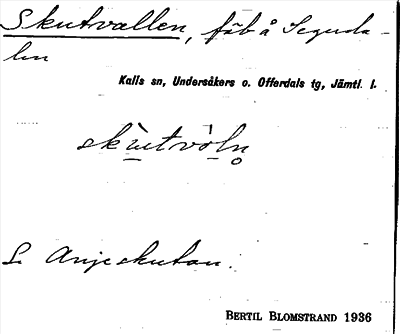 Skutvallen, fäb å
len
Kalls sn, Undersåkers o. Offerdals tg, Jämtl. l.
skùtvòln̥
S. Anjeskutan.
BERTIL BLOMSTRAND 1936